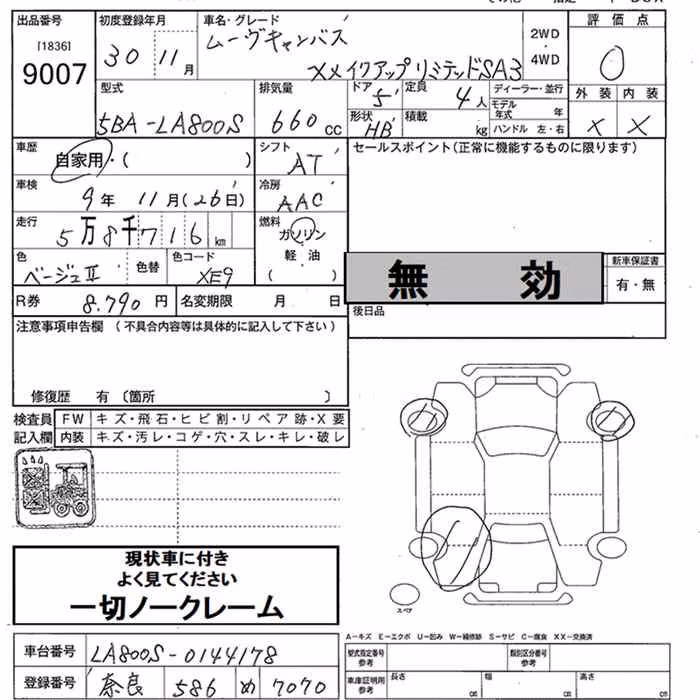 出品番号 [1836] 9007
初度登録年月 30 11月
車名・グレード ムーヴキャンバス
XメイクアップリミテッドSA3
2WD
4WD
評価点 0
外装 内装
X X
型式 5BA-LA800S
排気量 660cc
ドア 5 定員 4人
形状 HB 積載 kg
ディーラー・並行
モデル年式 年
ハンドル 左・右
車歴 自家用・( )
シフト AT
車検 9年 11月(26日)
冷房 AAC
走行 5万8千716km
燃料 ガソリン
軽油
( )
色 ベージュⅡ 色替 色コード XE9
R券 8,790円 名変期限 月 日
セールスポイント(正常に機能するものに限ります)
無 効
新車保証書
有・無
後日品
注意事項申告欄 (不具合内容等は具体的に記入して下さい)
修復歴 有 〔箇所 〕
検査員記入欄
FW キズ・飛石・ヒビ割・リペア跡・X要
内装 キズ・汚レ・コゲ・穴・スレ・キレ・破レ
現状車に付き
よく見てください
一切ノークレーム
スペア
A−キズ E−エクボ U−凹み W−補修跡 S−サビ C−腐食 XX−交換済
車台番号 LA800S-0144178
登録番号 奈良 586 め 7070
型式指定番号 参考
類別区分番号 参考
車庫証明用 参考
長さ cm 幅 cm 高さ cm